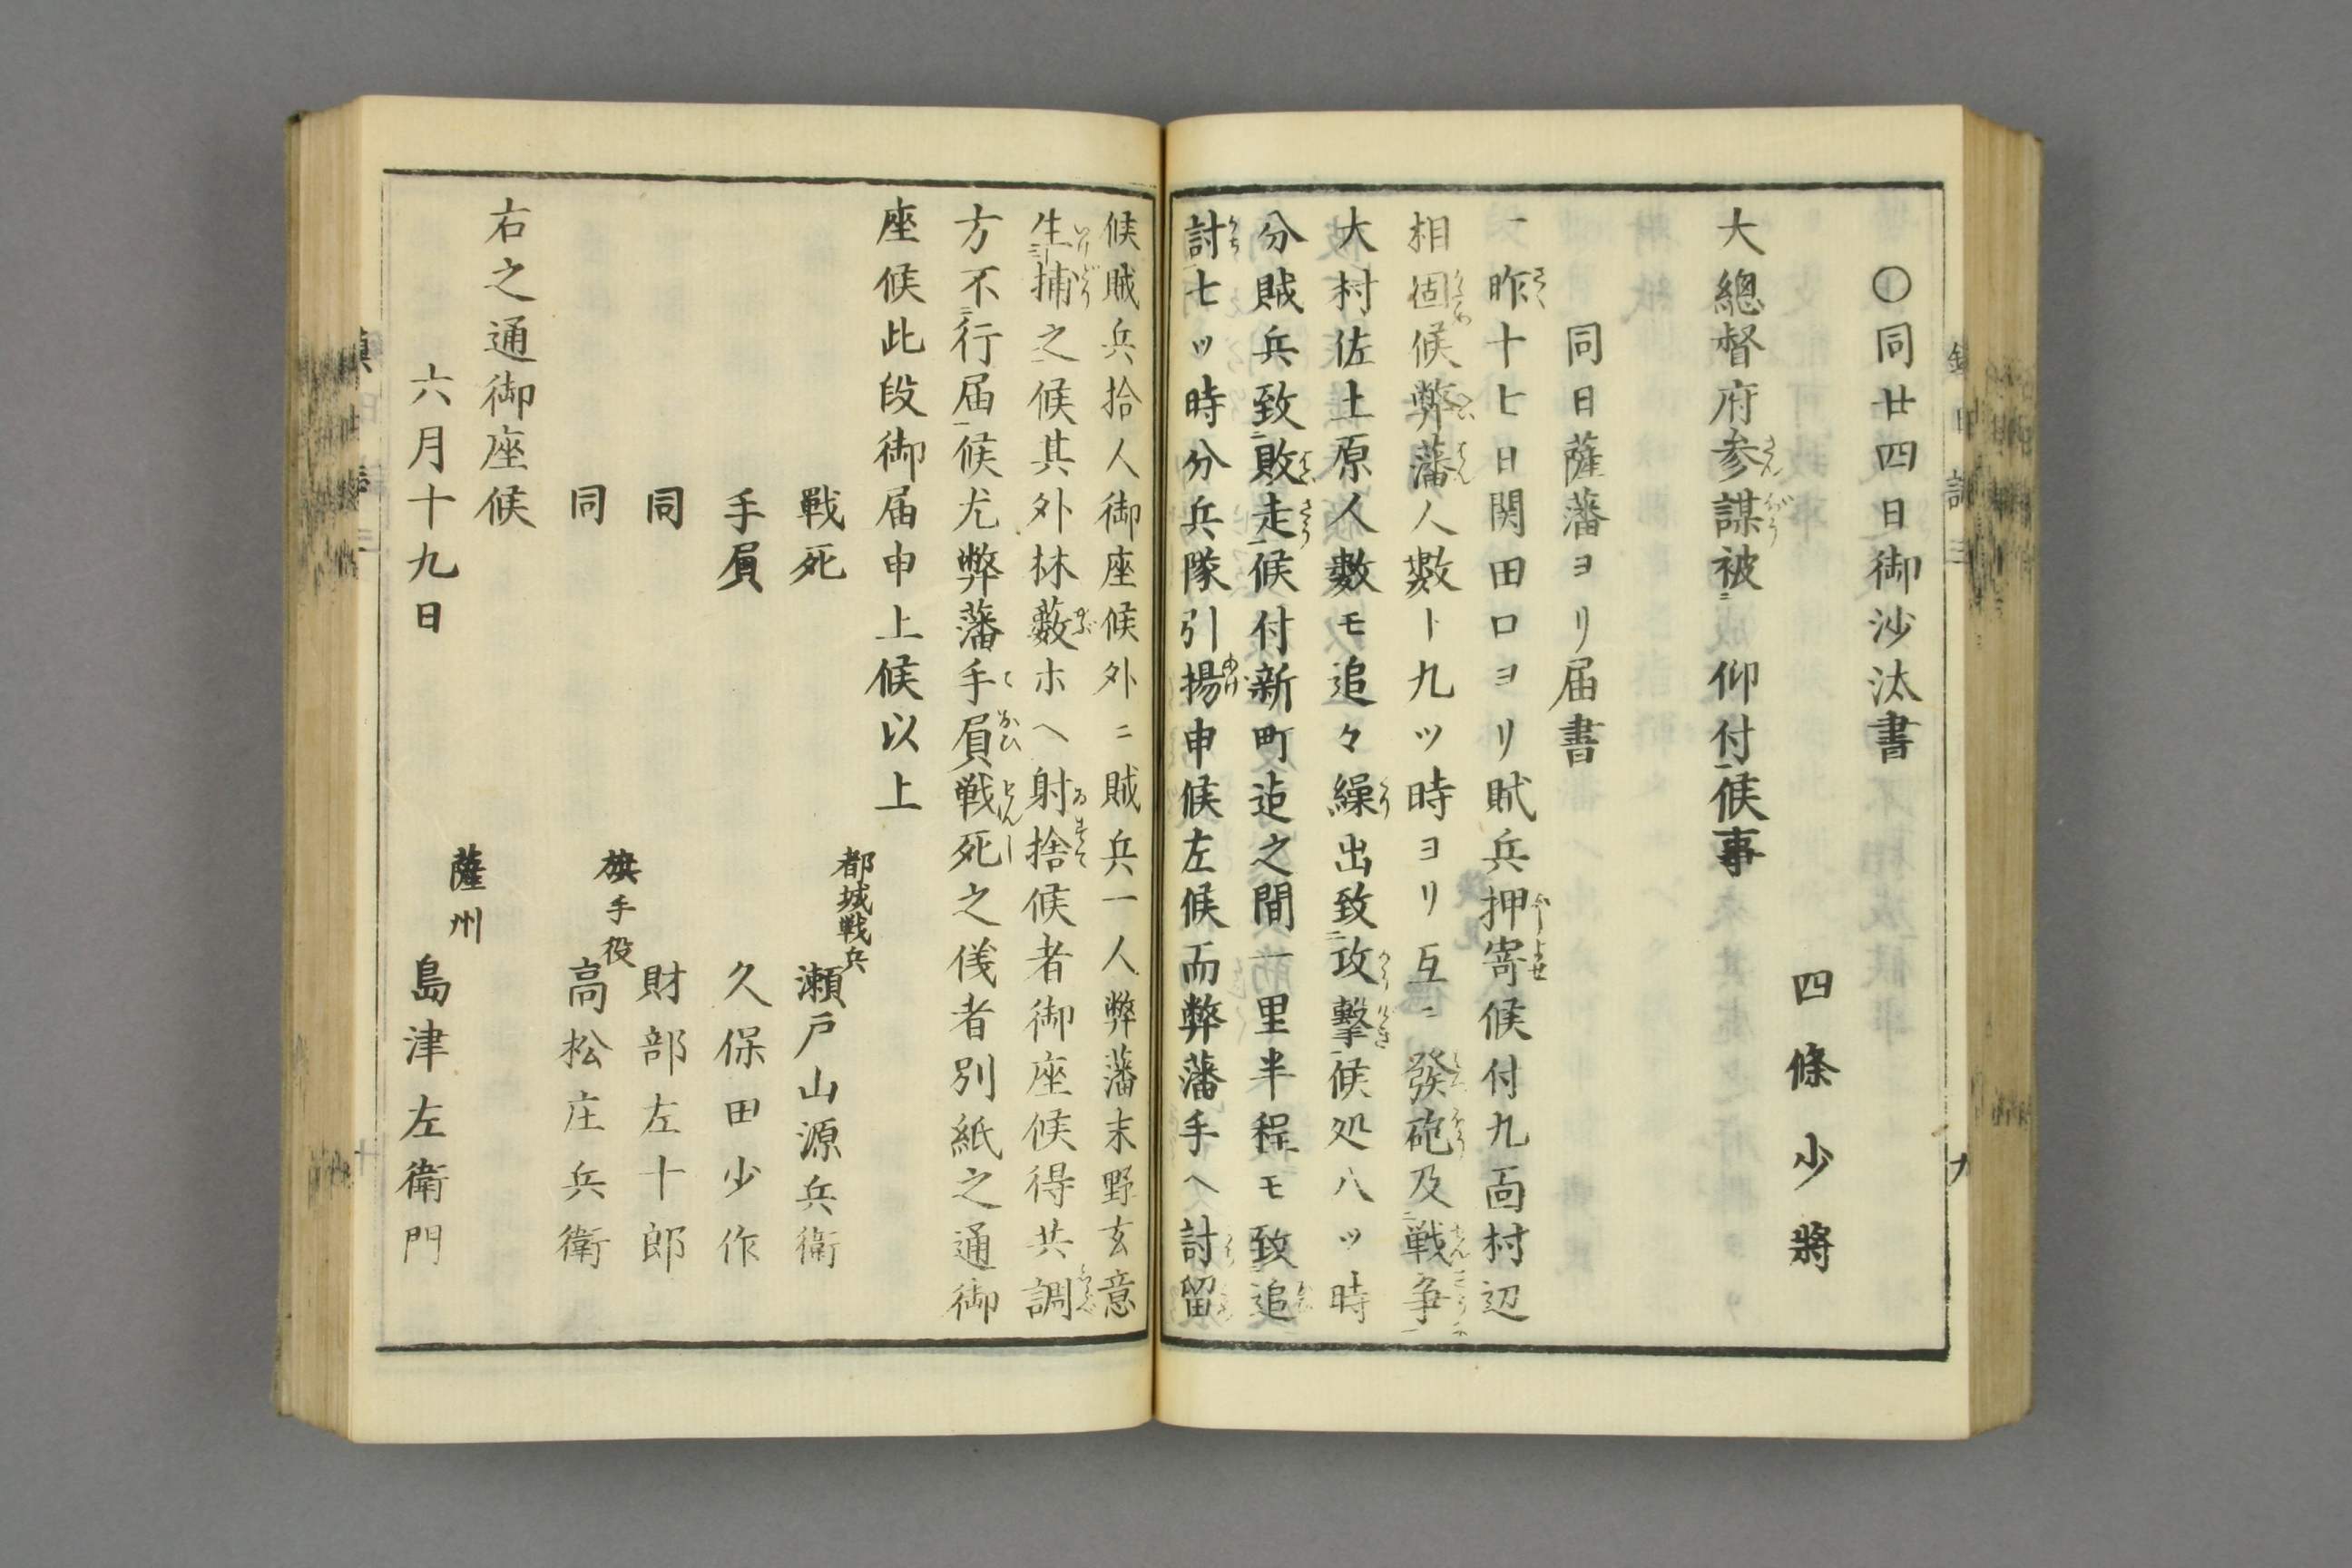 ○同廿四日御沙汰書
四條少將
大總督府参謀被仰付候事
同日薩藩ヨリ届書
一昨十七日関田口ヨリ賊兵押寄候付九面村辺
相固候弊藩人數ト九ツ時ヨリ互ニ發砲及戦争
大村佐土原人數モ追々繰出致攻擊候処八ツ時
分賊兵致敗走候付新町迠之間一里半程モ致追
討七ツ時分兵隊引揚申候左候而弊藩手ヘ討留
候賊兵拾人御座候外ニ賊兵一人弊藩末野玄意
生捕之候其外林藪ホヘ射捨候者御座候得共調
方不行届候尤弊藩手屓戦死之儀者別紙之通御
座候此段御届申上候以上
戦死 都城戦兵 瀬戸山源兵衛
手屓 久保田少作
同 財部左十郎
同 旗手役 高松庄兵衛
右之通御座候
薩州
六月十九日 島津左衛門